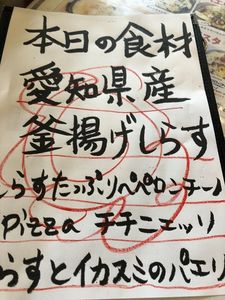 本日の食材
愛知県産
釜揚げしらす
らすたっぷりペペロンチーノ
Pizza チチニエッリ
らすとイカスミのパエリ